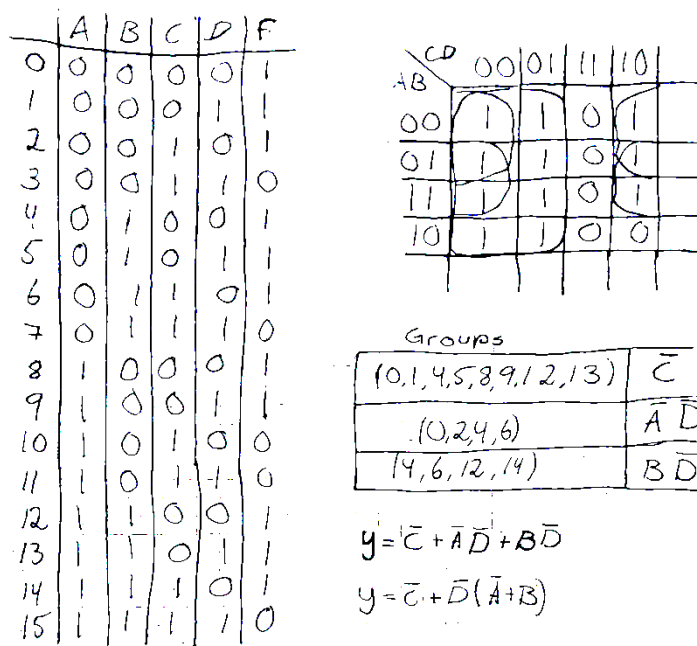 A B C D F
0 0 0 0 0 1
1 0 0 0 1 1
2 0 0 1 0 1
3 0 0 1 1 0
4 0 1 0 0 1
5 0 1 0 1 1
6 0 1 1 0 1
7 0 1 1 1 0
8 1 0 0 0 1
9 1 0 0 1 1
10 1 0 1 0 0
11 1 0 1 1 0
12 1 1 0 0 1
13 1 1 0 1 1
14 1 1 1 0 1
15 1 1 1 1 0
CD
AB 00 01 11 10
00 1 1 0 1
01 1 1 0 1
11 1 1 0 1
10 1 1 0 0
Groups
(0,1,4,5,8,9,12,13) C̅
(0,2,4,6) A̅ D̅
(4,6,12,14) B D̅
y = C̅ + A̅ D̅ + B D̅
y = C̅ + D̅ (A̅ + B)